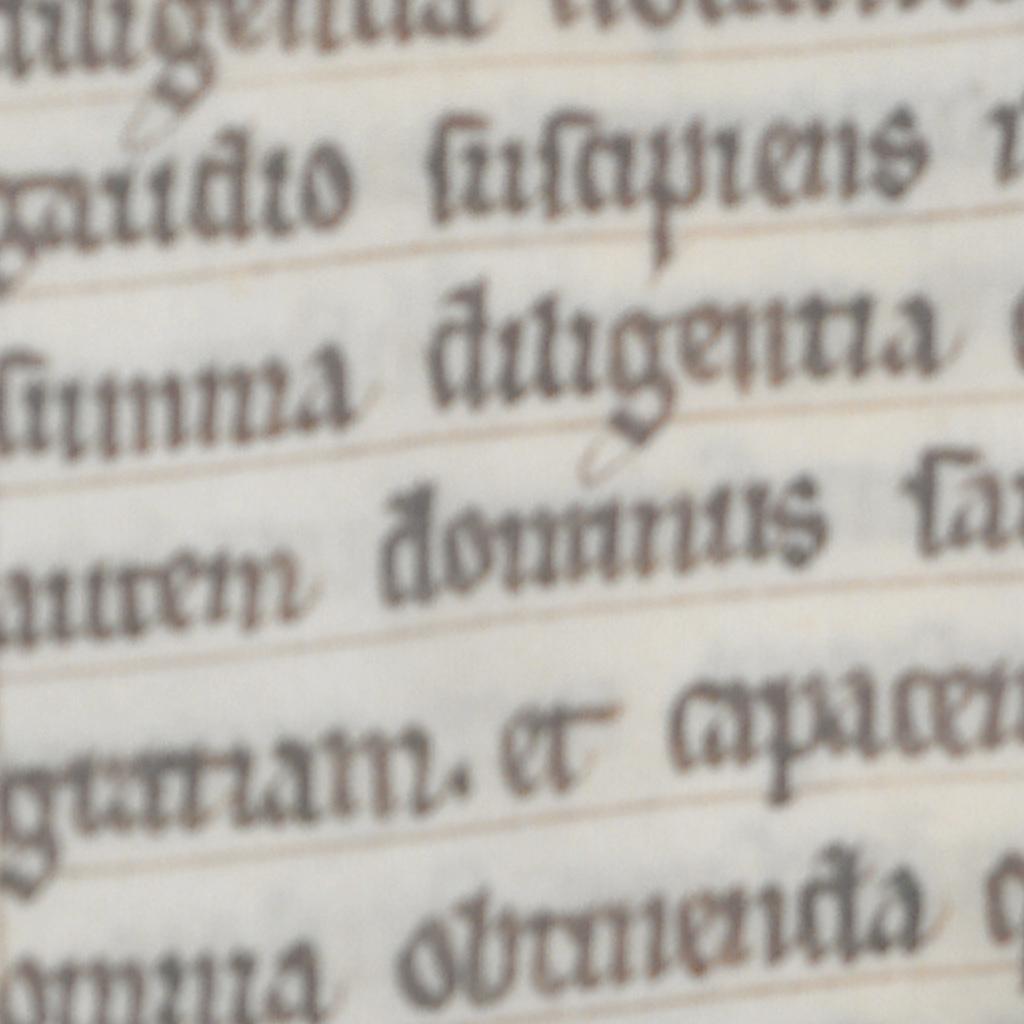 diligentia
gaudio suscipiens
summa diligentia
autem dominus
gratiam. et capacem
omnia obtinenda